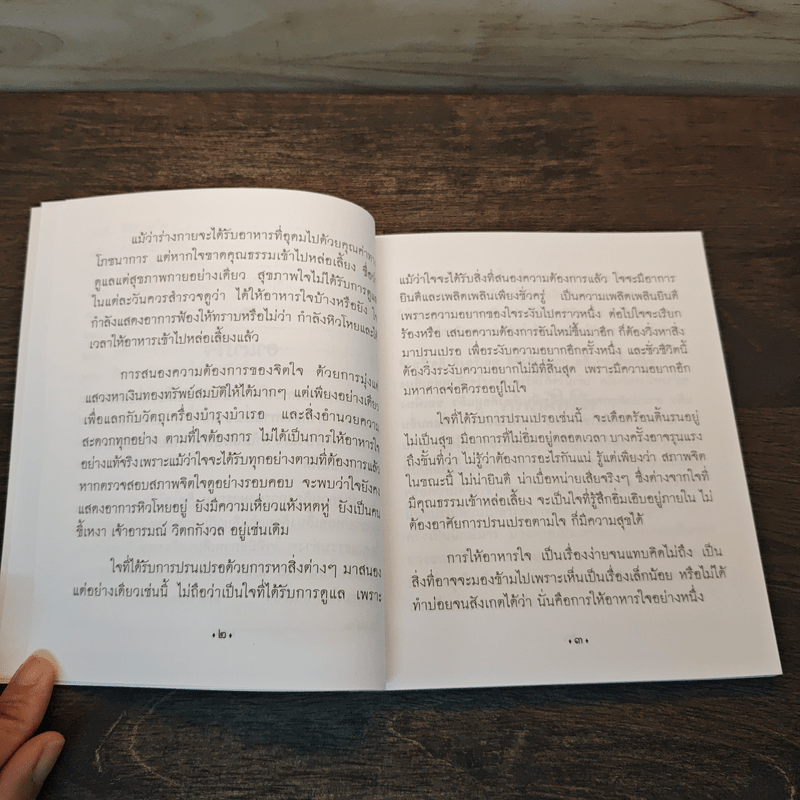 แม้ว่าร่างกายจะได้รับอาหารที่อุดมไปด้วยคุณค่าทาง
โภชนาการ แต่หากใจขาดคุณธรรมเข้าไปหล่อเลี้ยง
ดูแลแต่สุขภาพกายอย่างเดียว สุขภาพใจไม่ได้รับการดูแล
ในแต่ละวันควรสำรวจดูว่า ได้ให้อาหารใจบ้างหรือยัง
กำลังแสดงอาการฟ้องให้ทราบหรือไม่ว่า กำลังหิวโหยและ
เวลาให้อาหารเข้าไปหล่อเลี้ยงแล้ว
การสนองความต้องการของจิตใจ ด้วยการมุ่งแต่
แสวงหาเงินทองทรัพย์สมบัติให้ได้มากๆ แต่เพียงอย่างเดียว
เพื่อแลกกับวัตถุเครื่องบำรุงบำเรอ และสิ่งอำนวยความ
สะดวกทุกอย่าง ตามที่ใจต้องการ ไม่ได้เป็นการให้อาหารใจ
อย่างแท้จริงเพราะแม้ว่าใจจะได้รับทุกอย่างตามที่ต้องการแล้ว
หากตรวจสอบสภาพจิตใจดูอย่างรอบคอบ จะพบว่าใจยังคง
แสดงอาการหิวโหยอยู่ ยังมีความเหี่ยวแห้งหดหู่ ยังเป็นคน
ขี้เหงา เจ้าอารมณ์ วิตกกังวล อยู่เช่นเดิม
ใจที่ได้รับการปรนเปรอด้วยการหาสิ่งต่างๆ มาสนอง
แต่อย่างเดียวเช่นนี้ ไม่ถือว่าเป็นใจที่ได้รับการดูแล เพราะ
• ๒ •
แม้ว่าใจจะได้รับสิ่งที่สนองความต้องการแล้ว ใจจะมีอาการ
ยินดีและเพลิดเพลินเพียงชั่วครู่ เป็นความเพลิดเพลินยินดี
เพราะความอยากของใจระงับไปคราวหนึ่ง ต่อไปใจจะเรียก
ร้องหรือ เสนอความต้องการอันใหม่ขึ้นมาอีก ก็ต้องวิ่งหาสิ่ง
มาปรนเปรอ เพื่อระงับความอยากอีกครั้งหนึ่ง และชั่วชีวิตนี้
ต้องวิ่งระงับความอยากไม่มีที่สิ้นสุด เพราะมีความอยากอีก
มหาศาลจ่อคิวรออยู่ในใจ
ใจที่ได้รับการปรนเปรอเช่นนี้ จะเดือดร้อนดิ้นรนอยู่
ไม่เป็นสุข มีอาการที่ไม่อิ่มอยู่ตลอดเวลา บางครั้งอาจรุนแรง
ถึงขั้นที่ว่า ไม่รู้ว่าต้องการอะไรกันแน่ รู้แต่เพียงว่า สภาพจิต
ในขณะนี้ ไม่น่ายินดี น่าเบื่อหน่ายเสียจริงๆ ซึ่งต่างจากใจที่
มีคุณธรรมเข้าหล่อเลี้ยง จะเป็นใจที่รู้สึกอิ่มเอิบอยู่ภายใน ไม่
ต้องอาศัยการปรนเปรอตามใจ ก็มีความสุขได้
การให้อาหารใจ เป็นเรื่องง่ายจนแทบคิดไม่ถึง เป็น
สิ่งที่อาจจะมองข้ามไปเพราะเห็นเป็นเรื่องเล็กน้อย หรือไม่ได้
ทำบ่อยจนสังเกตได้ว่า นั่นคือการให้อาหารใจอย่างหนึ่ง
• ๓ •